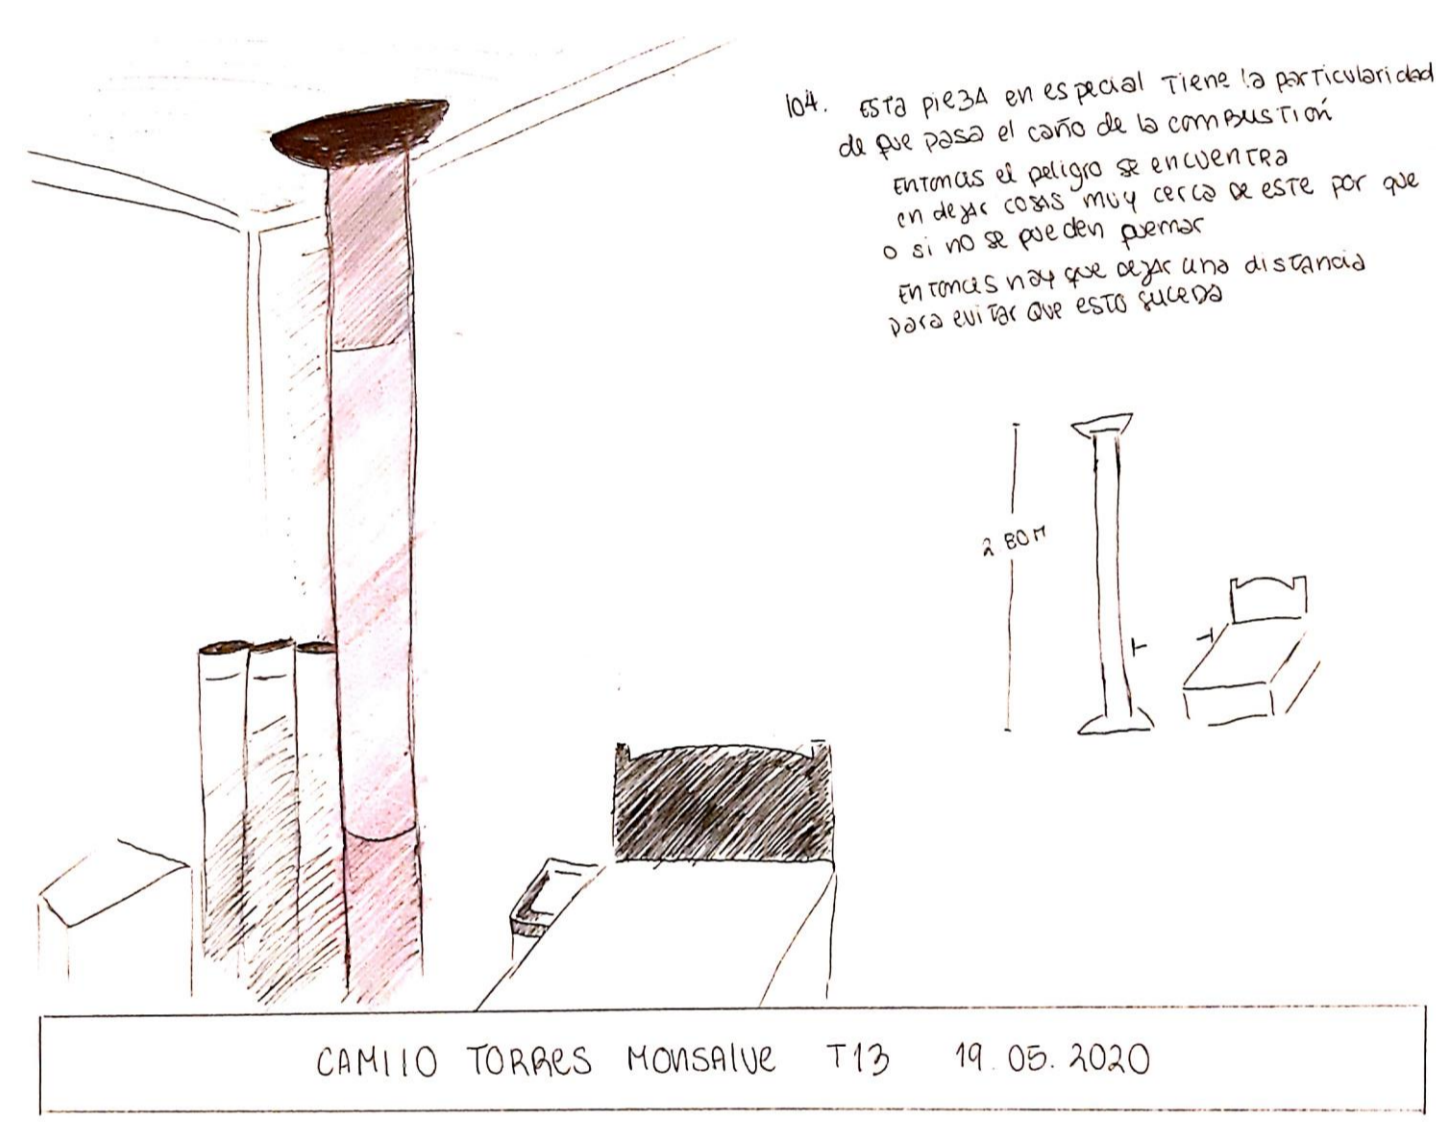 104. Esta pieza en especial tiene la particularidad
de que pasa el caño de la combustión
Entonces el peligro se encuentra
en dejar cosas muy cerca de este por que
o si no se pueden quemar
Entonces hay que dejar una distancia
para evitar que esto suceda
2.80M
CAMILO TORRES MONSALVE T13 19.05.2020